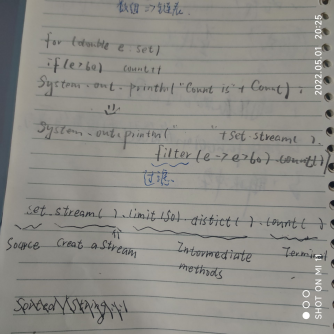 for (double e : set)
if (e>60) count++
System.out.println("Count is" + Count);
System.out.println(" " + Set.stream().
filter(e -> e>60).count()
过滤
set.stream().limit(50).distict().count()
Source Creat a Stream Intermediate methods Terminal
2022.05.01 20:25
SHOT ON MI 11